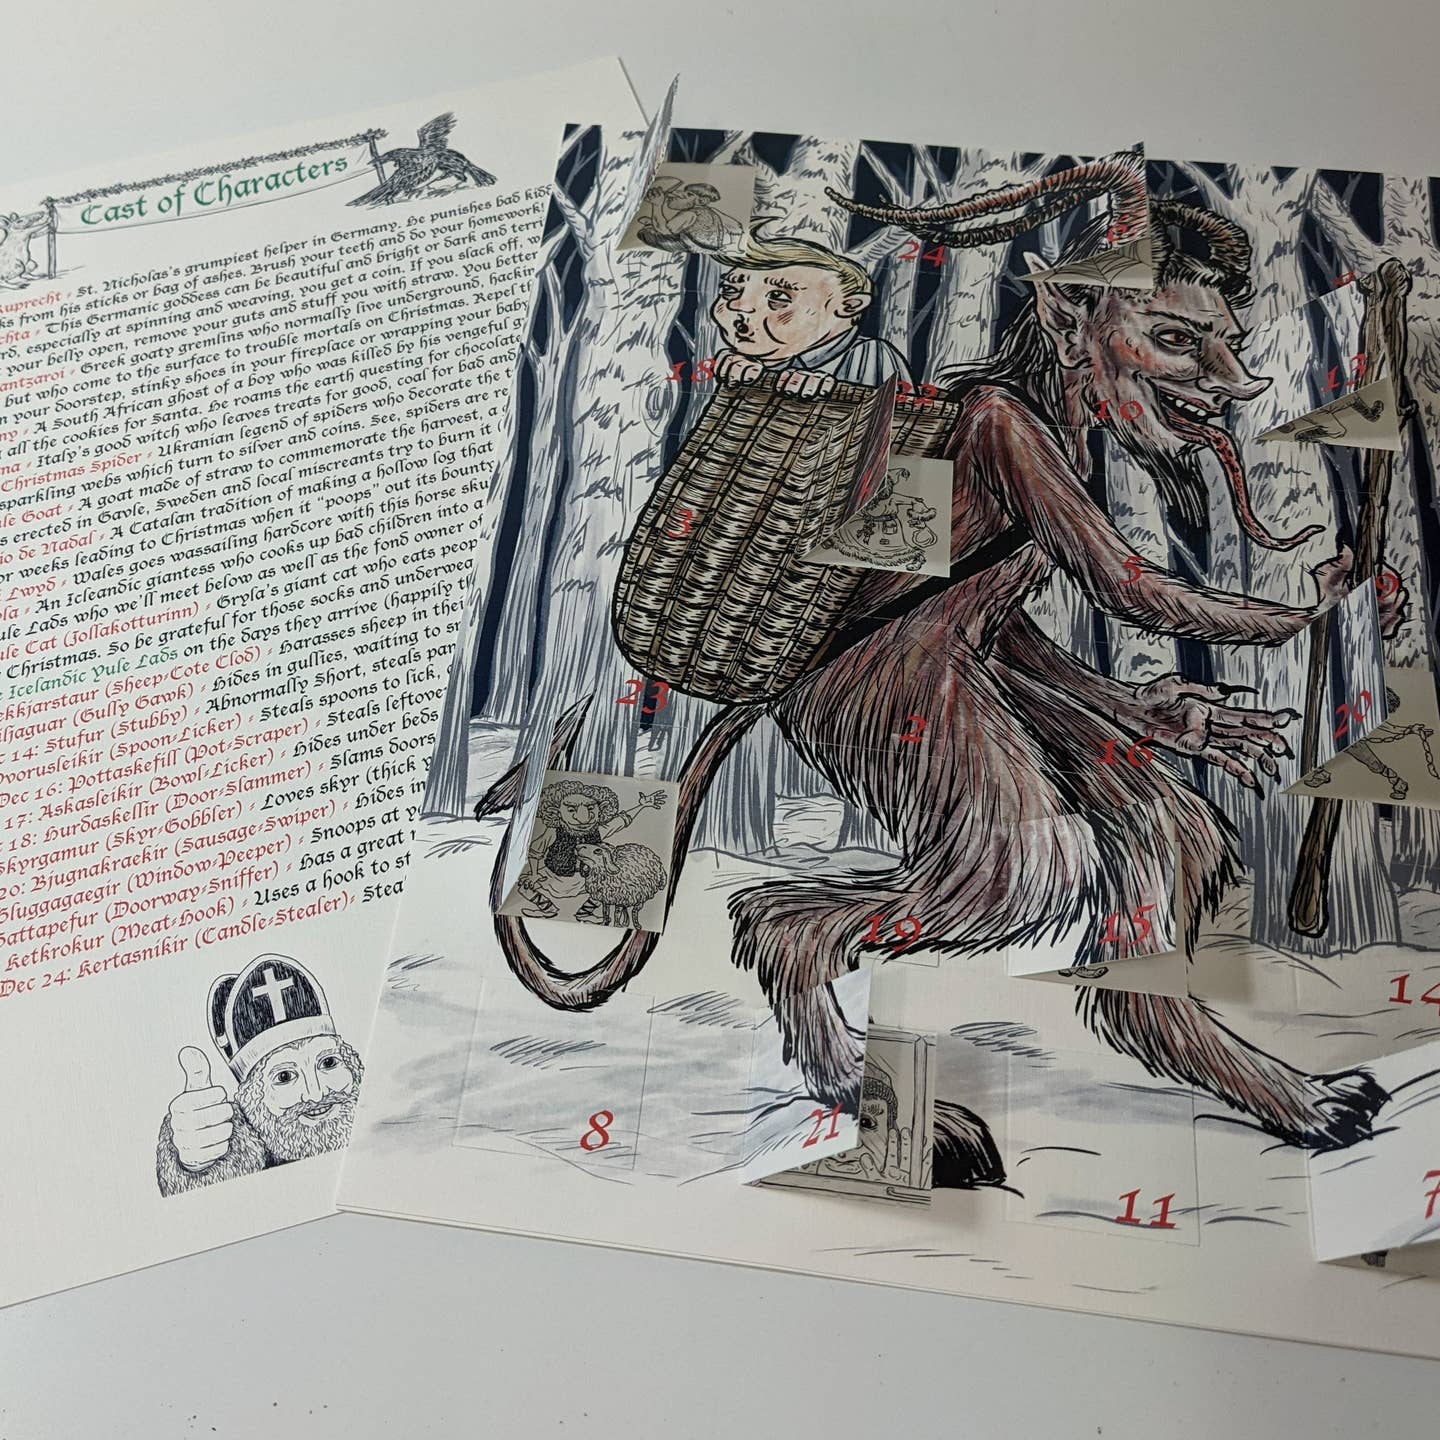 Cast of Characters
Ruprecht - St. Nicholas's grumpiest helper in Germany. He punishes bad kids
from his sticks or bag of ashes. Brush your teeth and do your homework!
This Germanic goddess can be beautiful and bright or dark and
especially at spinning and weaving, you get a coin. If you slack off,
your belly open, remove your guts and stuff you with straw. You better
Greek goaty gremlins who normally live underground,
but who come to the surface to trouble mortals on Christmas. Repel
your doorstep, stinky shoes in your fireplace or wrapping your baby
A South African ghost of a boy who was killed by his vengeful
all the cookies for Santa. He roams the earth questing for chocolate
Italy's good witch who leaves treats for good, coal for bad and
Christmas Spider - Ukranian legend of spiders who decorate the
sparkling webs which turn to silver and coins. See, spiders are
Goat - A goat made of straw to commemorate the harvest, a
erected in Gavle, Sweden and local miscreants try to burn it
de Nadal - A Catalan tradition of making a hollow log that
for weeks leading to Christmas when it "poops" out its bounty
Lwyd - Wales goes wassailing hardcore with this horse
An Icleandic giantess who cooks up bad children into a
Lads who we'll meet below as well as the fond owner of
Cat (Jollakotturinn) - Gryla's giant cat who eats
Christmas. So be grateful for those socks and
Icelandic Yule Lads on the days they arrive (happily
(Sheep-Cote Clod) - Harasses sheep in their
(Gully Gawk) - Hides in gullies, waiting to
14: Stufur (Stubby) - Abnormally Short, steals
(Spoon-Licker) - Steals spoons to lick,
Dec 16: Pottaskefill (Pot-Scraper) - Steals
17: Askasleikir (Bowl-Licker) - Hides under beds
18: Hurdaskellir (Door-Slammer) - Slams doors
Skyrgamur (Skyr-Gobbler) - Loves skyr (thick
20: Bjugnakraekir (Sausage-Swiper) - Hides in
Gluggagaegir (Window-Peeper) - Snoops at
Gattapefur (Doorway-Sniffer) - Has a great
Ketkrokur (Meat-Hook) - Uses a hook to
Dec 24: Kertasnikir (Candle-Stealer)-
24
18
22
13
10
3
5
9
23
2
16
20
19
15
14
8
21
11
7